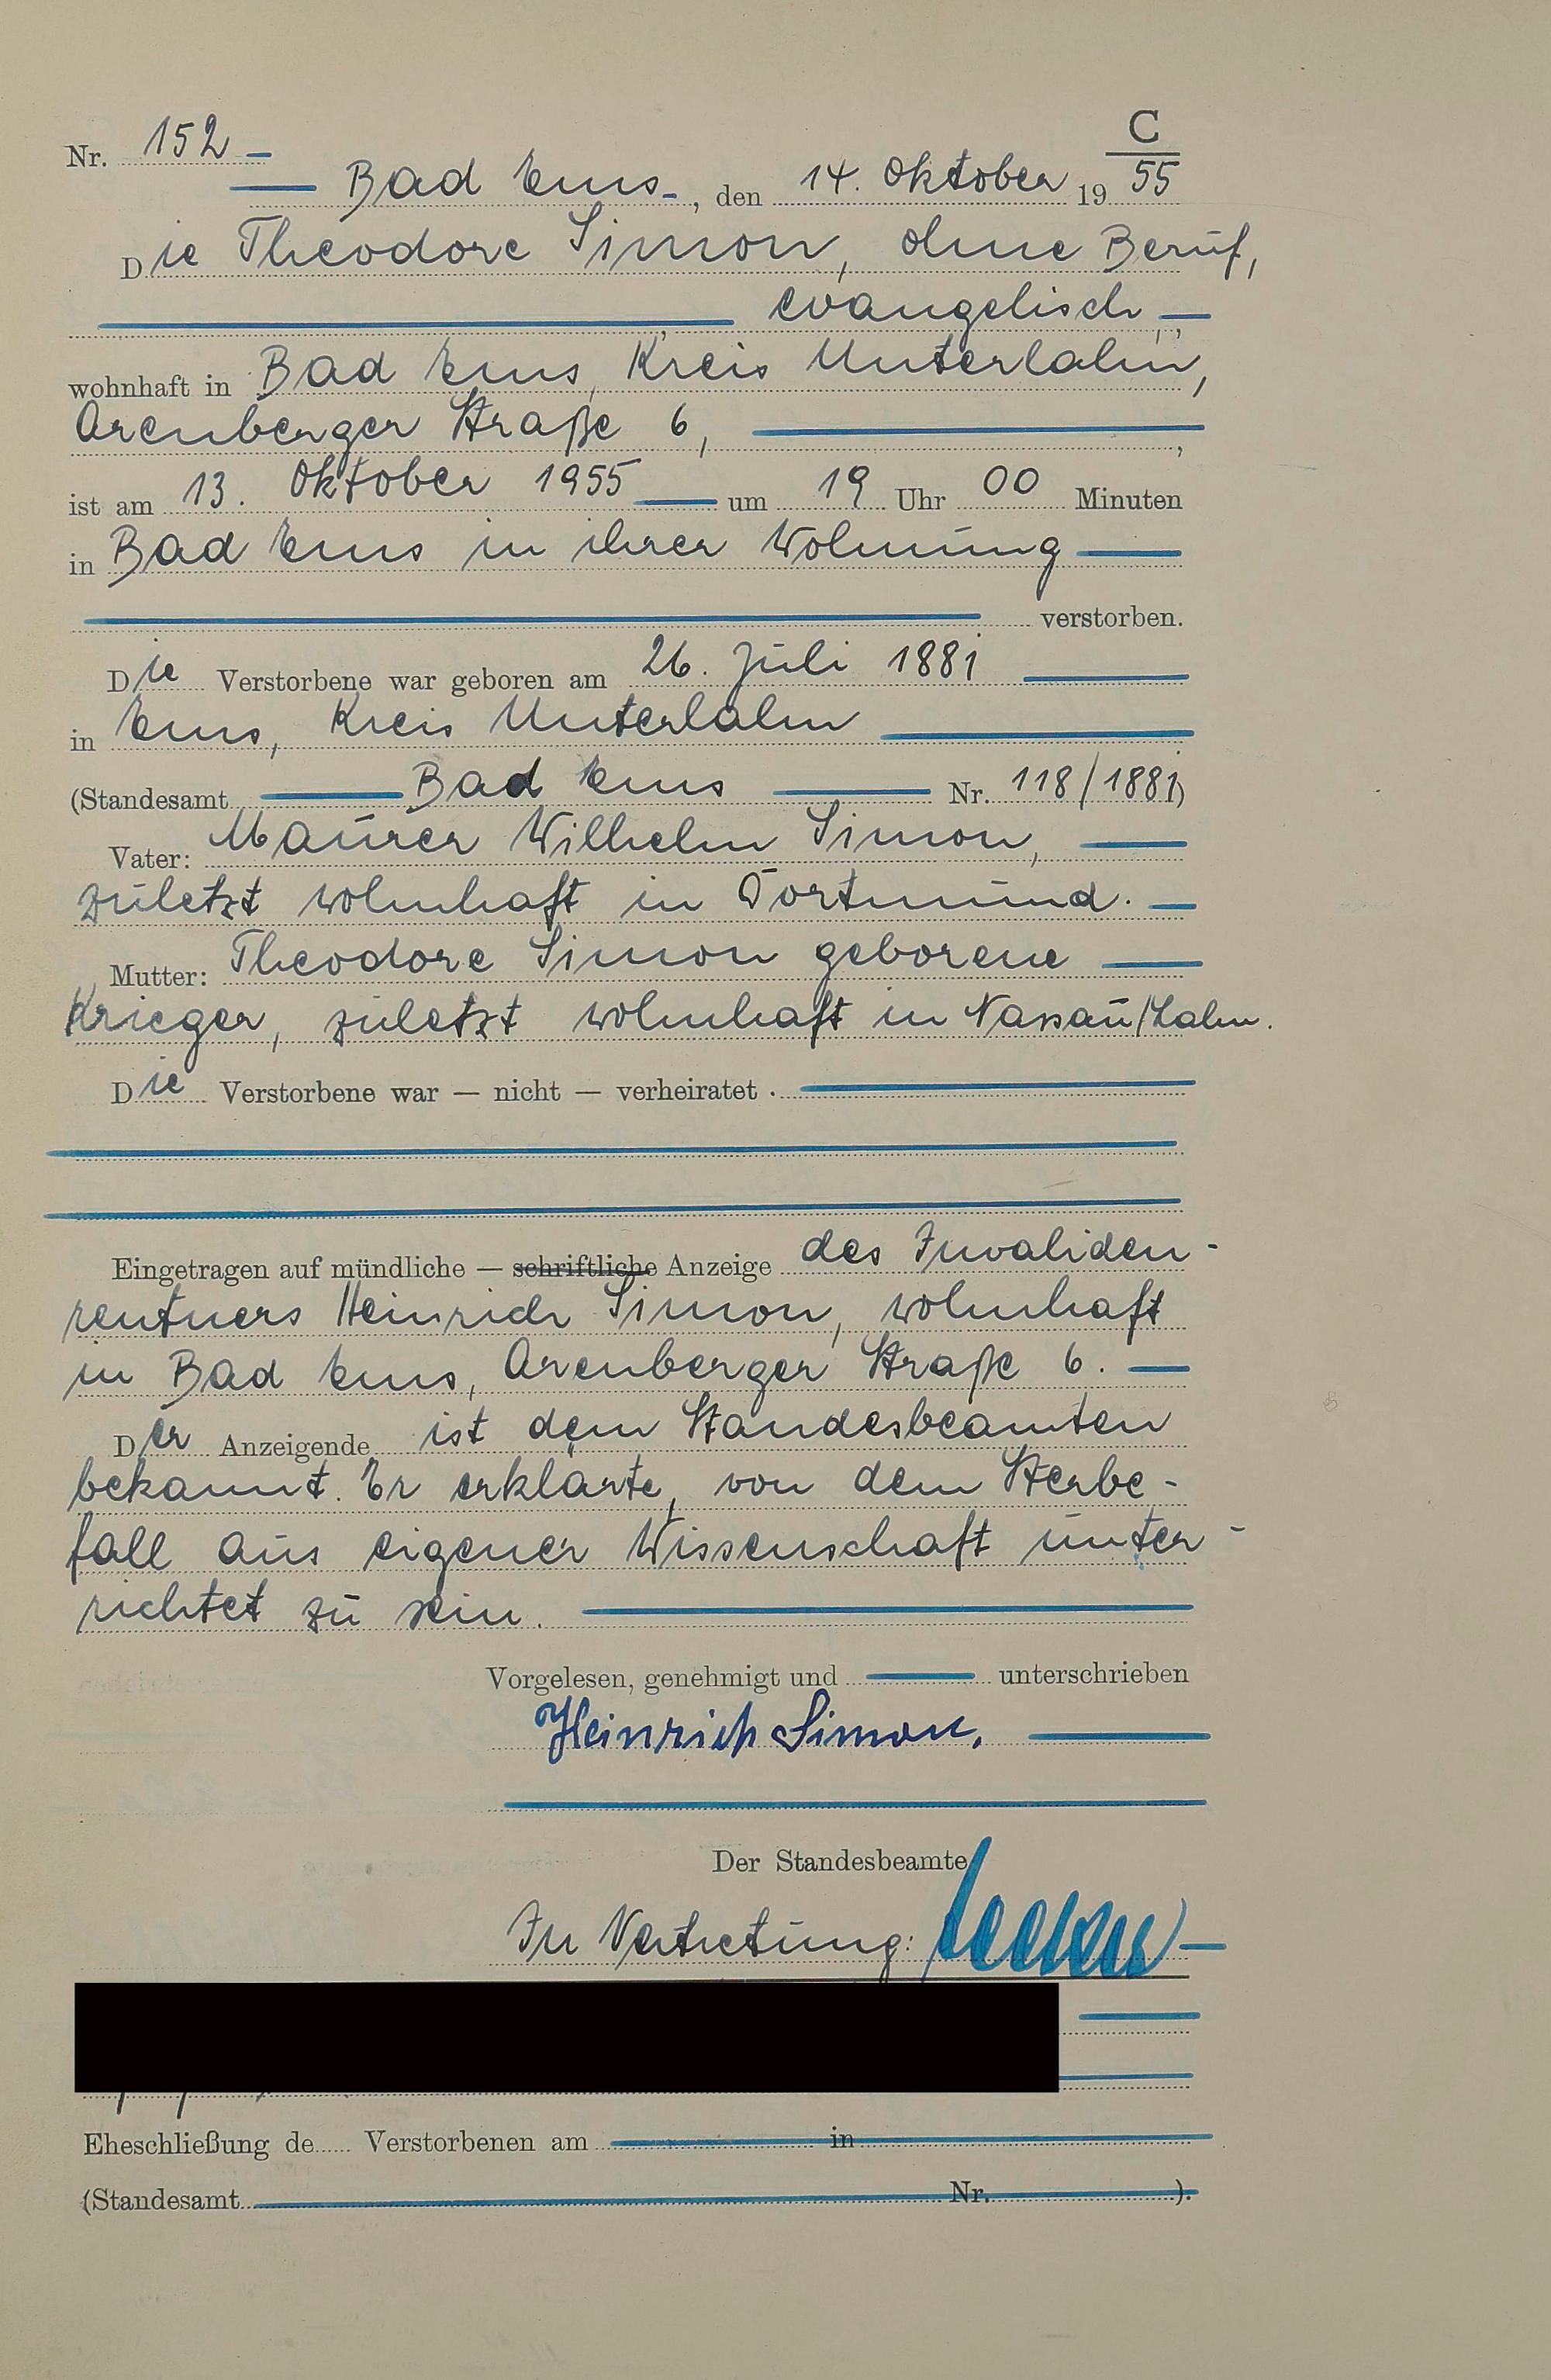 C
Nr. 152
Bad Ems, den 14. Oktober 1955
Die Theodore Simon, ohne Beruf,
evangelisch,
wohnhaft in Bad Ems, Kreis Unterlahn,
Arenberger Straße 6,
ist am 13. Oktober 1955 um 19 Uhr 00 Minuten
in Bad Ems in ihrer Wohnung
verstorben.
Die Verstorbene war geboren am 26. Juli 1881
in Ems, Kreis Unterlahn
(Standesamt Bad Ems Nr. 118/1881)
Vater: Maurer Wilhelm Simon,
zuletzt wohnhaft in Dortmund.
Mutter: Theodore Simon geborene
Krieger, zuletzt wohnhaft in Nassau/Lahn.
Die Verstorbene war — nicht — verheiratet.
Eingetragen auf mündliche — schriftliche Anzeige des Invaliden-
rentners Heinrich Simon, wohnhaft
in Bad Ems, Arenberger Straße 6.
Der Anzeigende ist dem Standesbeamten
bekannt. Er erklärte, von dem Sterbe-
fall aus eigener Wissenschaft unter-
richtet zu sein.
Vorgelesen, genehmigt und unterschrieben
Heinrich Simon.
Der Standesbeamte
In Vertretung:
Eheschließung de Verstorbenen am in
(Standesamt Nr. ).